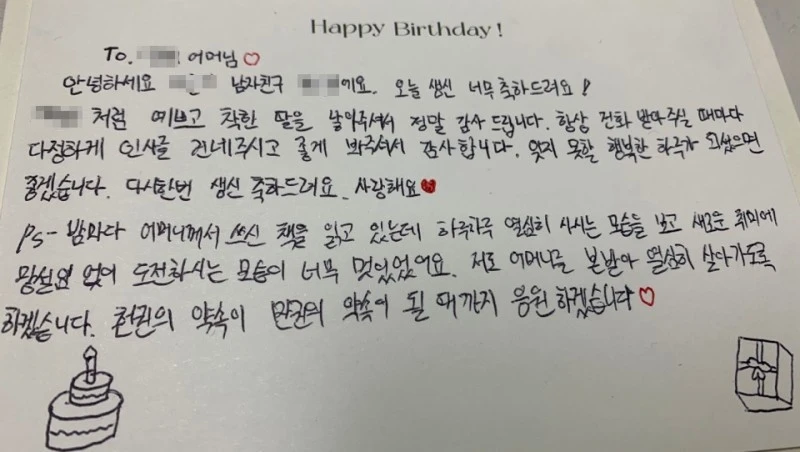 Happy Birthday!
To. 어머님♡
안녕하세요 남자친구 에요. 오늘 생신 너무 축하드려요!
처럼 예쁘고 착한 딸을 낳아주셔서 정말 감사드립니다. 항상 전화 받아주실 때마다
다정하게 인사를 건네주시고 좋게 봐주셔서 감사합니다. 잊지 못할 행복한 하루가 되셨으면
좋겠습니다. 다시한번 생신 축하드려요. 사랑해요♥
Ps- 밤마다 어머니께서 쓰신 책을 읽고 있는데 하루하루 열심히 사시는 모습을 보고 새로운 취미에
망설임 없이 도전하시는 모습이 너무 멋있었어요. 저도 어머니를 본받아 열심히 살아가도록
하겠습니다. 한권의 약속이 만권의 약속이 될 때까지 응원하겠습니다♡